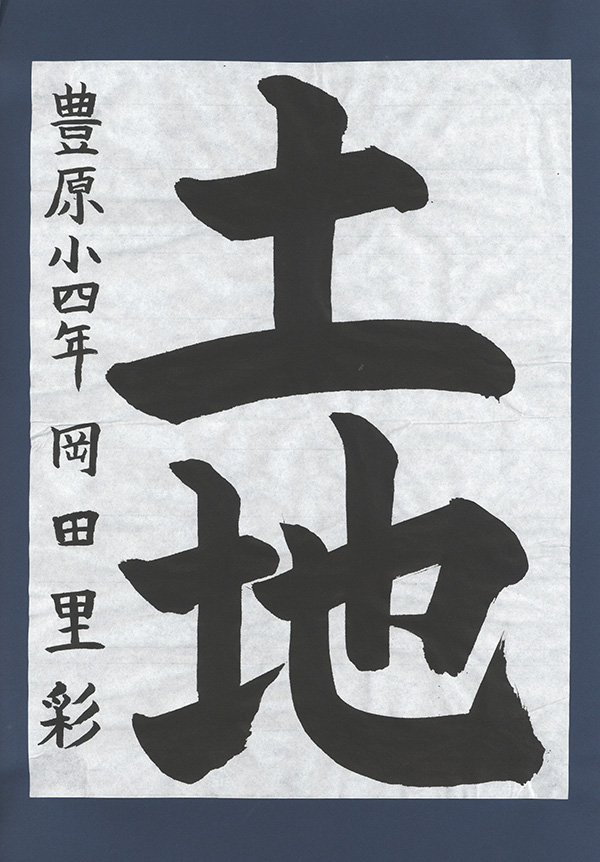 土地
豊原小四年 岡田里彩